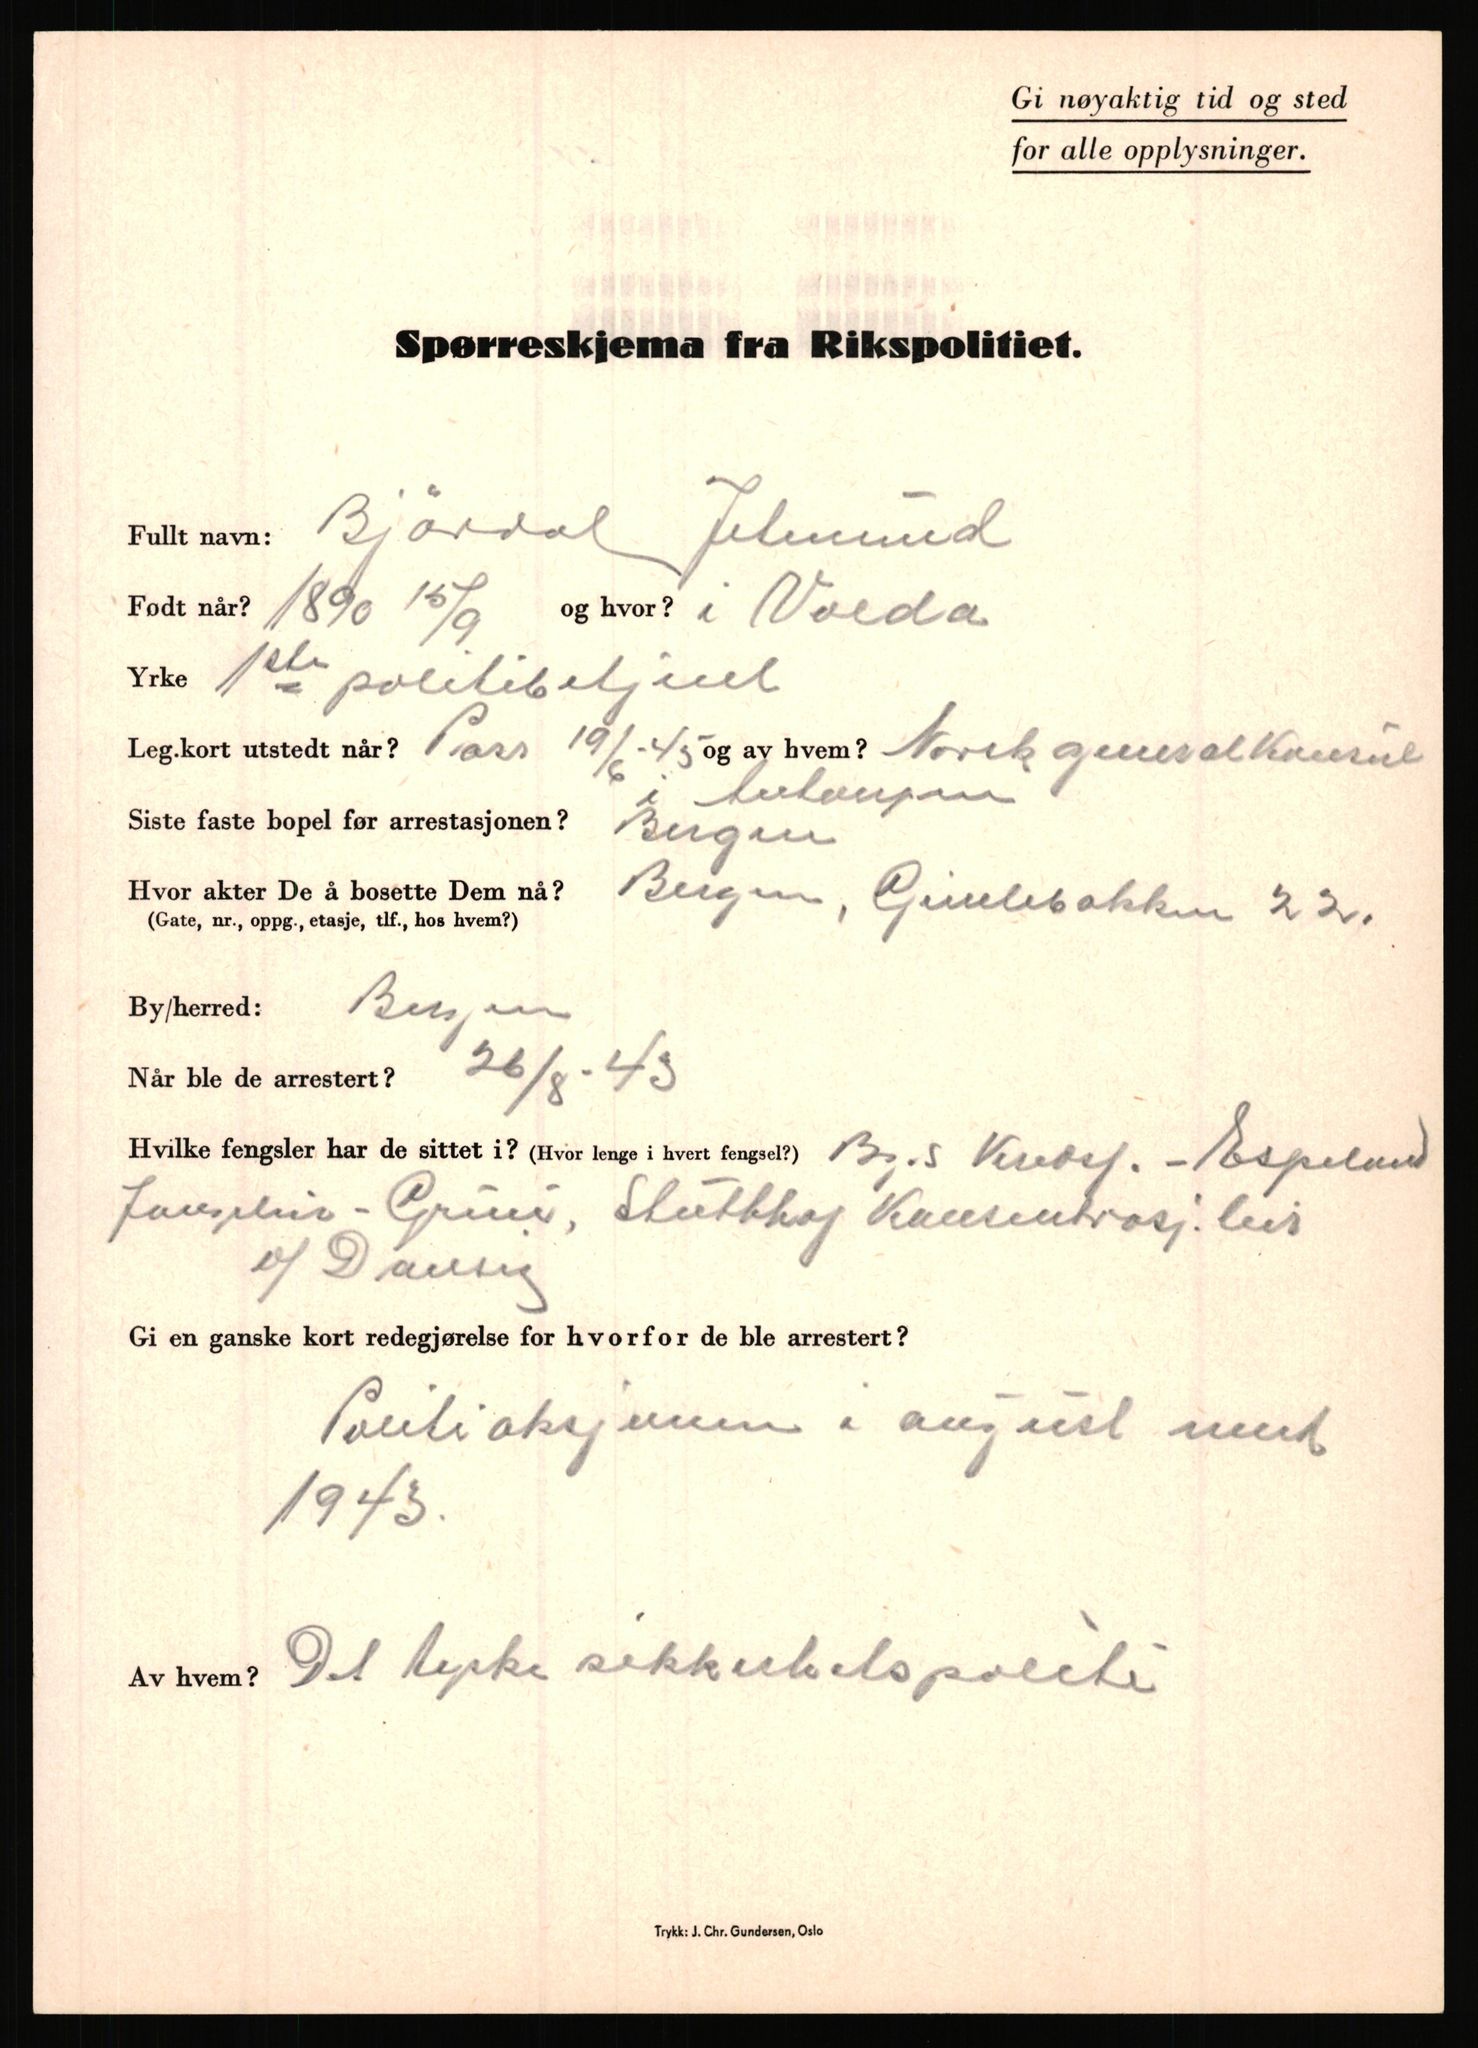 Gi nøyaktig tid og sted
for alle opplysninger.
Spørreskjema fra Rikspolitiet.
Fullt navn: Björdal Jetmund
Født når? 1890 15/9 og hvor? i Volda
Yrke 1ste politibetjent
Leg.kort utstedt når? Pass 19/6-45 og av hvem? Norsk generalkonsul
i Antwerpen
Siste faste bopel før arrestasjonen? Bergen
Hvor akter De å bosette Dem nå? Bergen, Gimlebakken 22.
(Gate, nr., oppg., etasje, tlf., hos hvem?)
By/herred: Bergen
Når ble de arrestert? 26/8-43
Hvilke fengsler har de sittet i? (Hvor lenge i hvert fengsel?) Bg.s Kretsf. - Espeland
Fangeleir - Grini, Stutthof Konsentrasj.leir
v/ Danzig
Gi en ganske kort redegjørelse for hvorfor de ble arrestert?
Politiaksjonen i august mnd
1943.
Av hvem? Det tyske sikkerhetspoliti
Trykk: J. Chr. Gundersen, Oslo